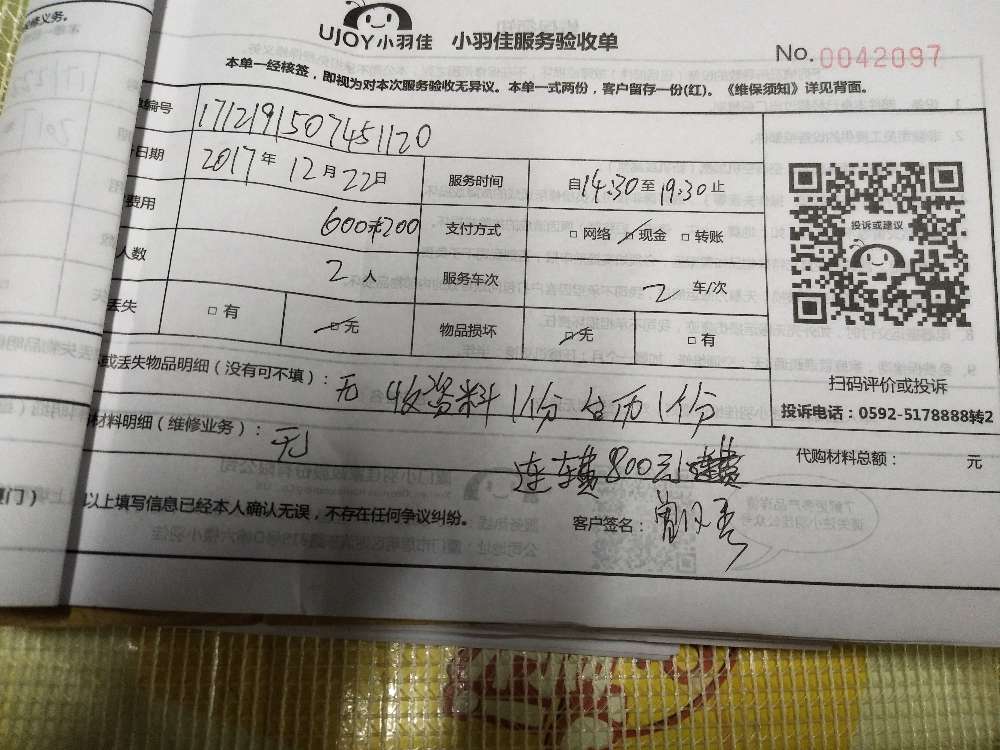 修义务。
UJOY小羽佳 小羽佳服务验收单
No. 0042097
本单一经核签，即视为对本次服务验收无异议。本单一式两份，客户留存一份(红)。《维保须知》详见背面。
编号 171219150745​1120
日期 2017年 12月 22日 服务时间 自14:30至19:30止
费用 600+200 支付方式 □ 网络 □ 现金 □ 转账
投诉或建议
人数 2人 服务车次 2 车/次
丢失 □ 有 □ 无 物品损坏 □ 无 □ 有
扫码评价或投诉
或丢失物品明细（没有可不填）：无 收资料1份 台历1份
投诉电话：0592-5178888转2
材料明细（维修业务）：无
代购材料总额： 元
连车费800元
厦门）
以上填写信息已经本人确认无误，不存在任何争议纠纷。 客户签名：